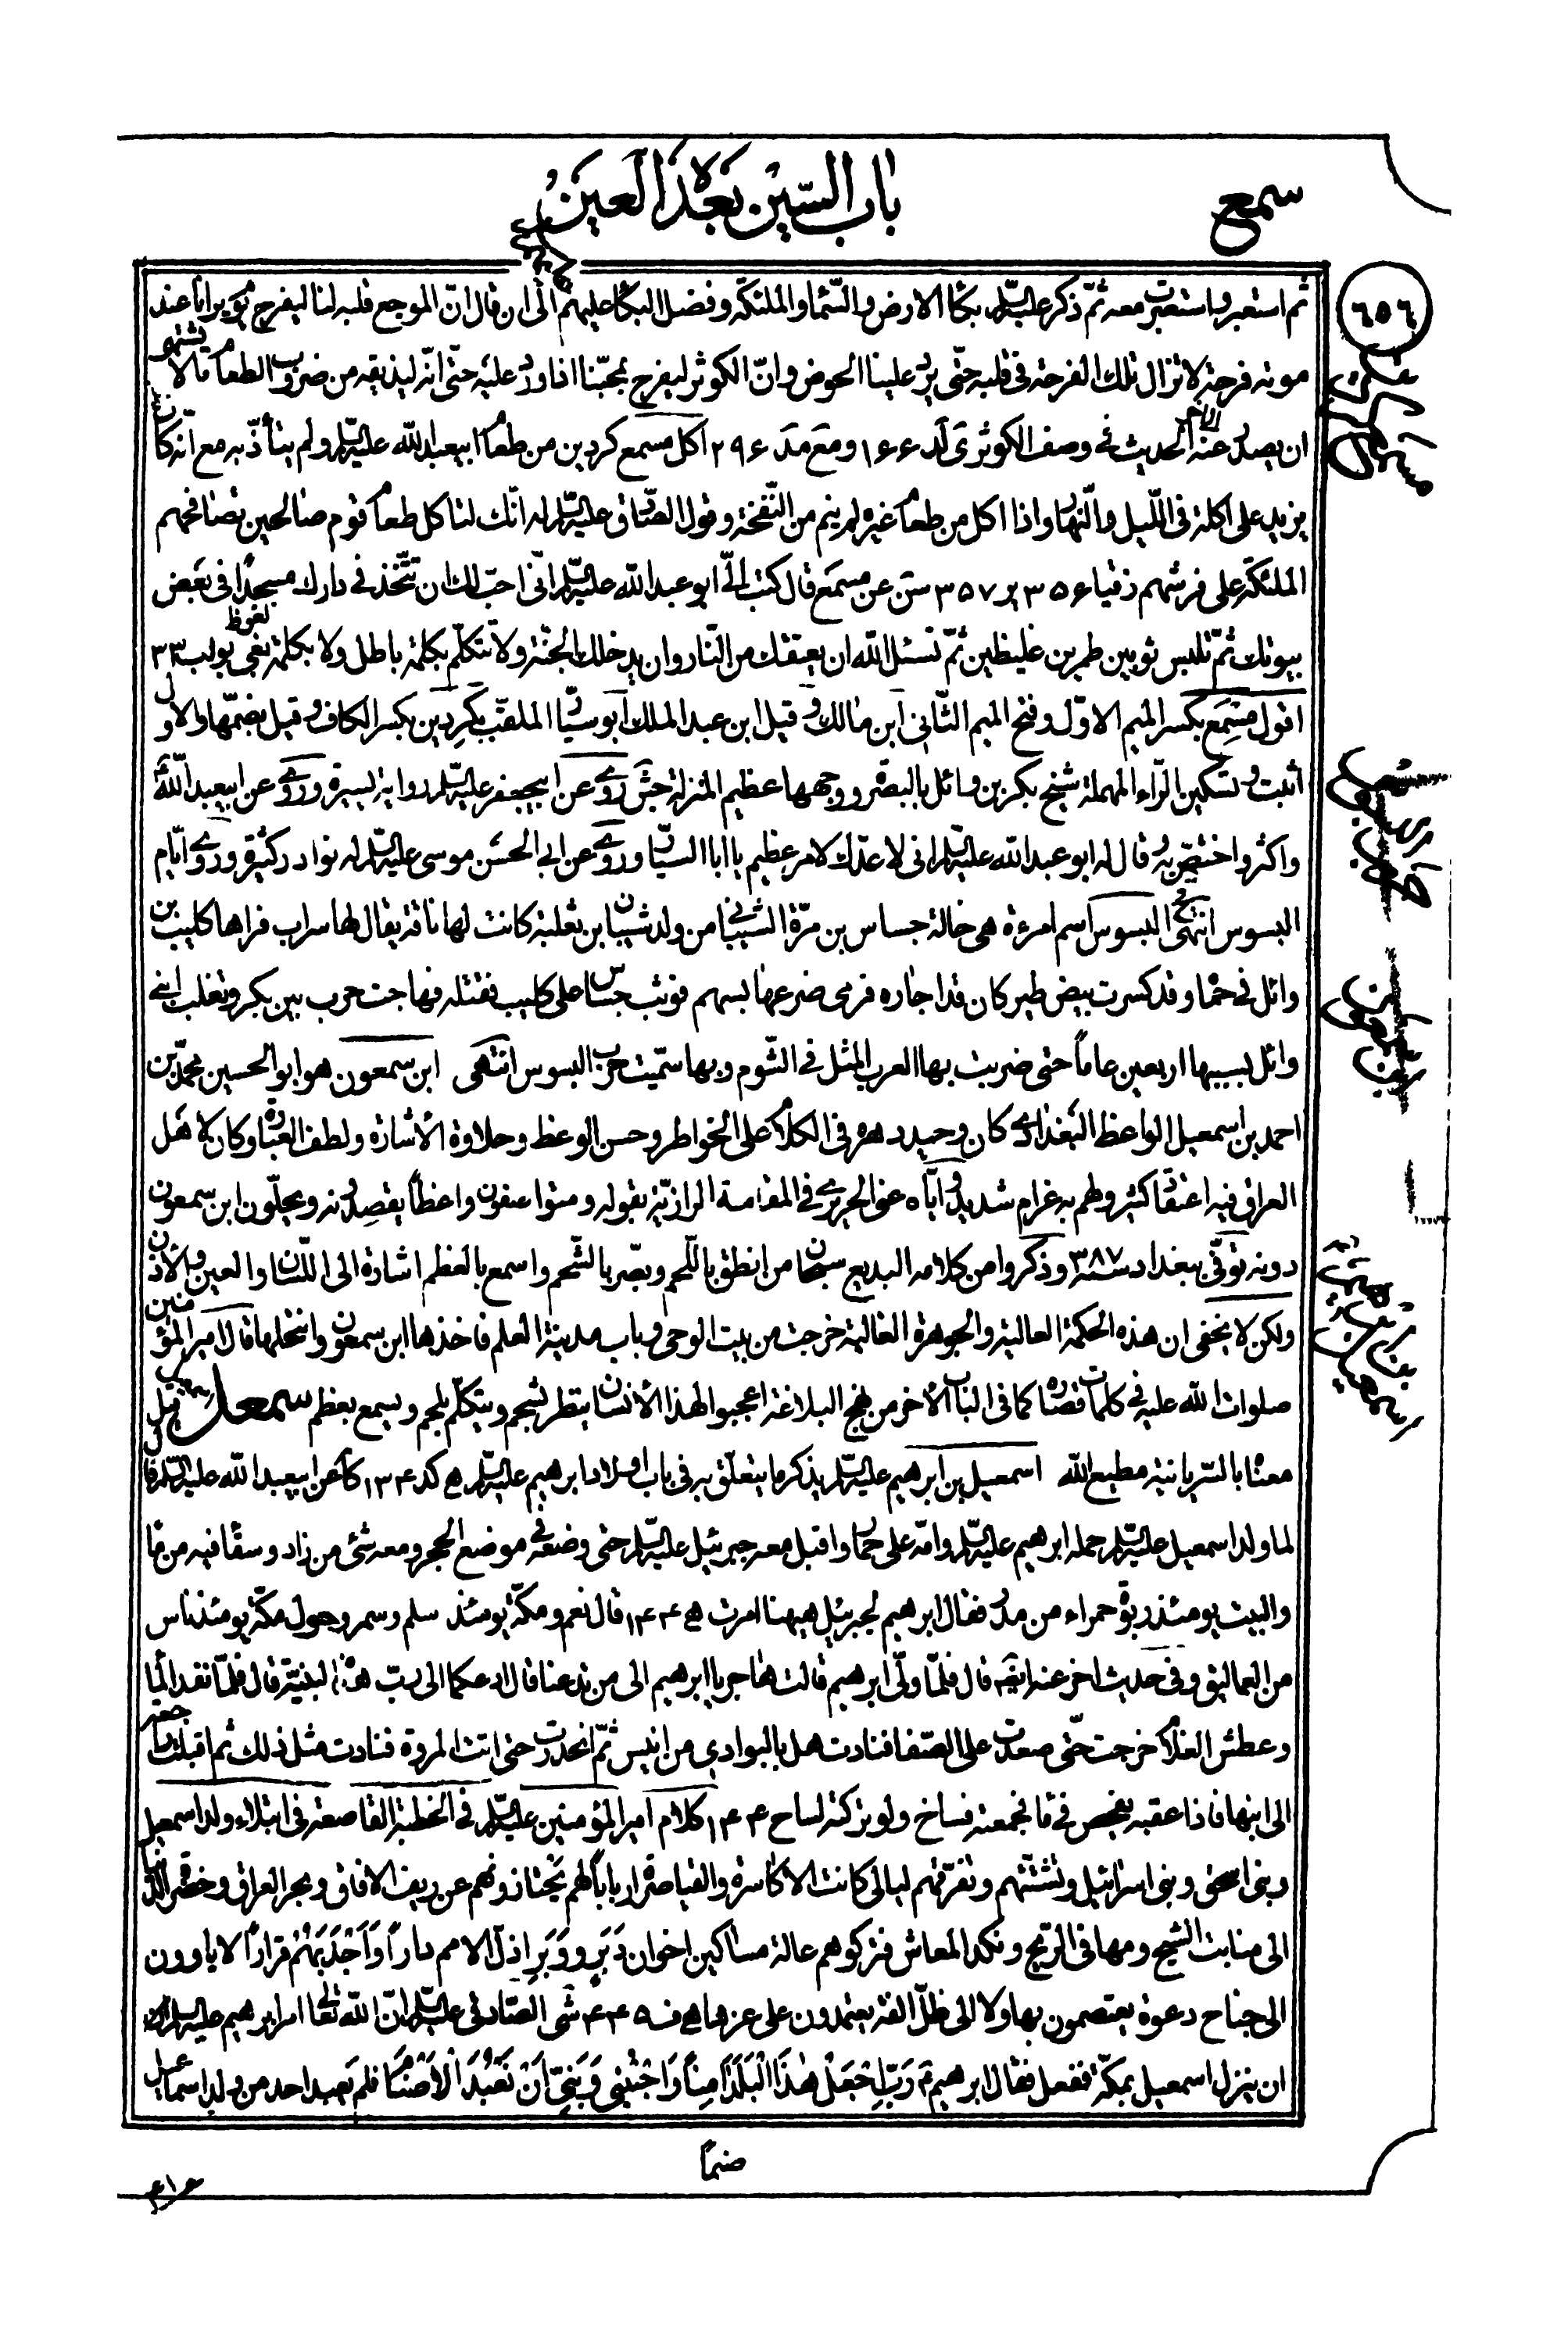 سمع
باب السّين بعده العين
٦٥٦
ثم استعبر واستعبرت معه ثمّ ذكر عليه السّلام بكاء الارض والسّماء والملئكة وفضل البكاء عليهم الى ان قال انّ الموجع قلبه لنا ليفرح يوم يرانا عند
موته فرحة لا تزال تلك الفرحة فى قلبه حتّى يرد علينا الحوض وانّ الكوثر ليفرح بمحبّنا اذا ورد عليه حتى انّه ليذيقه من ضروب الطعام ما لا يشتهى
ان يصدر عنه الحديث فى وصف الكوثر ى لد ١۶۶ ومع مد ٢٩۶ اكل مسمع كردين من طعام ابيعبدالله عليه السّلام ولم يتأذّ به مع انّه كان
يزيد على اكلة فى اللّيل والنّهار واذا اكل من طعام غيره لم ينم من النّفخة وقول الصّادق عليه السّلام له انّك لتاكل طعام قوم صالحين تصافحهم
الملئكة على فرشهم ز قيا ٣٥۶ ير ٣٥٧ سن عن مسمع قال كتب الىّ ابو عبد الله عليه السّلام انّى احبّ لك ان تتّخذ فى دارك مسجدًا فى بعض
بيوتك ثمّ تلبس ثوبين طمرين غليظين ثمّ تسئل الله ان يعتقك من النّار وان يدخلك الجنّة ولا تتكلّم بكلمة باطل ولا بكلمة بغى
اقول مسمع بكسر الميم الاوّل وفتح الميم الثّانى ابن مالك وقيل ابن عبد الملك ابو سيّار الملقّب بكردين بكسر الكاف وقيل بضمّها والاول
اثبت وتسكين الرّاء المهملة شيخ بكر بن وائل بالبصرة ووجهها عظيم المنزلة جش روى عن ابيجعفر عليه السّلام رواية يسيرة وروى عن ابيعبد الله
واكثر واختصّ به وقال له ابو عبد الله عليه السّلام انى لاعدّك لامر عظيم يا ابا السيّار وروى عن ابى الحسن موسى عليه السّلام له نوادر كثيرة وروى ايّام
البسوس انتهى البسوس اسم امرءة هى خالة جساس بن مرّة الشيبانى من ولد شيبان ابن ثعلبة كانت لها ناقة يقال لها سراب فراها كليب بن
وائل فى حماه وقد كسرت بيض طير كان قد اجاره فرمى ضرعها بسهم فوثب جساس على كليب فقتله فهاجت حرب بين بكر وتغلب ابنى
وائل بسببها اربعين عاماً حتى ضربت بها العرب المثل فى الشّوم وبها سمّيت حرب البسوس انتهى ابن سمعون هو ابو الحسين محمّد بن
احمد بن اسمعيل الواعظ البغدادى كان وحيد دهره فى الكلام على الخواطر وحسن الوعظ وحلاوة الاشارة ولطف العبارة وكان لاهل
العراق فيه اعتقاد كثير ولهم به غرام شديد وايّاه عنى الحريرى فى المقامة الرازيّة بقوله ومتواصفون واعظاً يقصدونه ويحلّون ابن سمعون
دونه توفّى ببغداد سنة ٣٨٧ وذكروا من كلامه البديع سبحان من انطق باللّحم وبصّر بالشّحم واسمع بالعظم اشارة الى اللّسان والعين والاذن
ولكن لا يخفى ان هذه الحكمة العالية والجوهرة الغالية خرجت من بيت الوحى وباب مدينة العلم فاخذها ابن سمعون وانتحلها قال امير المؤمنين
صلوات الله عليه فى كلمات قصاره كما فى الباب الاخر من نهج البلاغة اعجبوا لهذا الانسان ينظر بشحم ويتكلّم بلحم ويسمع بعظم سمعل قيل
معناه بالسّريانية مطيع الله اسمعيل بن ابرهيم عليه السّلام يذكر ما يتعلّق به فى باب اولاد ابرهيم عليه السّلام ه كد ١٣۴ كا عن ابيعبد الله عليه السّلام قال
لما ولد اسمعيل عليه السّلام حمله ابرهيم عليه السّلام وامّه على حمار واقبل معه جبرئيل عليه السّلام حتى وضعه فى موضع الحجر ومعه شئ من زاد وسقاء فيه من ماء
والبيت يومئذ ربوة حمراء من مدر فقال ابرهيم لجبرئيل هيهنا امرت ه ١۴۴ قال نعم ومكّة يومئذ سلم وسمر وحول مكّة يومئذ ناس
من العماليق وفى حديث اخر عنه ايضا قال فلمّا ولّى ابرهيم قالت هاجر يا ابرهيم الى من تدعنا قال ادعكما الى ربّ هذه البنيّة قال فلمّا نفد الماء
وعطش الغلام خرجت حتّى صعدت على الصّفا فنادت هل بالبوادى من انيس ثمّ انحدرت حتى اتت المروة فنادت مثل ذلك ثم اقبلت راجعة
الى ابنها فاذا عقبه يفحص فى ماء فجمعته فساخ ولو تركته لساح ١۴۴ كلام امير المؤمنين عليه السّلام فى الخطبة القاصعة فى ابتلاء ولد اسمعيل
وبنى اسحق وبنى اسرائيل وتشتّتهم وتفرّقهم ليالى كانت الاكاسرة والقياصرة ارباباً لهم يحتازونهم عن ريف الافاق وبحر العراق وخضرة الدّنيا
الى منابت الشيح ومهافى الرّيح ونكد المعاش فتركوهم عالة مساكين اخوان دَبَرٍ ووَبَرٍ اذلّ الامم داراً وَاَجْدَبَهُمْ قراراً لا ياوون
الى جناح دعوة يعتصمون بها ولا الى ظلّ الفة يعتمدون على عزها ه ف ۴۴٥ شى الصّادق عليه السّلام انّ الله تعالى امر ابرهيم عليه السّلام
ان ينزل اسمعيل بمكّة ففعل فقال ابرهيم رَبِّ اجْعَلْ هٰذَا الْبَلَدَ اٰمِنًا وَاجْنُبْنِى وَبَنِىَّ اَنْ نَعْبُدَ الْاَصْنَامَ فلم يعبد احد من ولد اسماعيل
صنماً